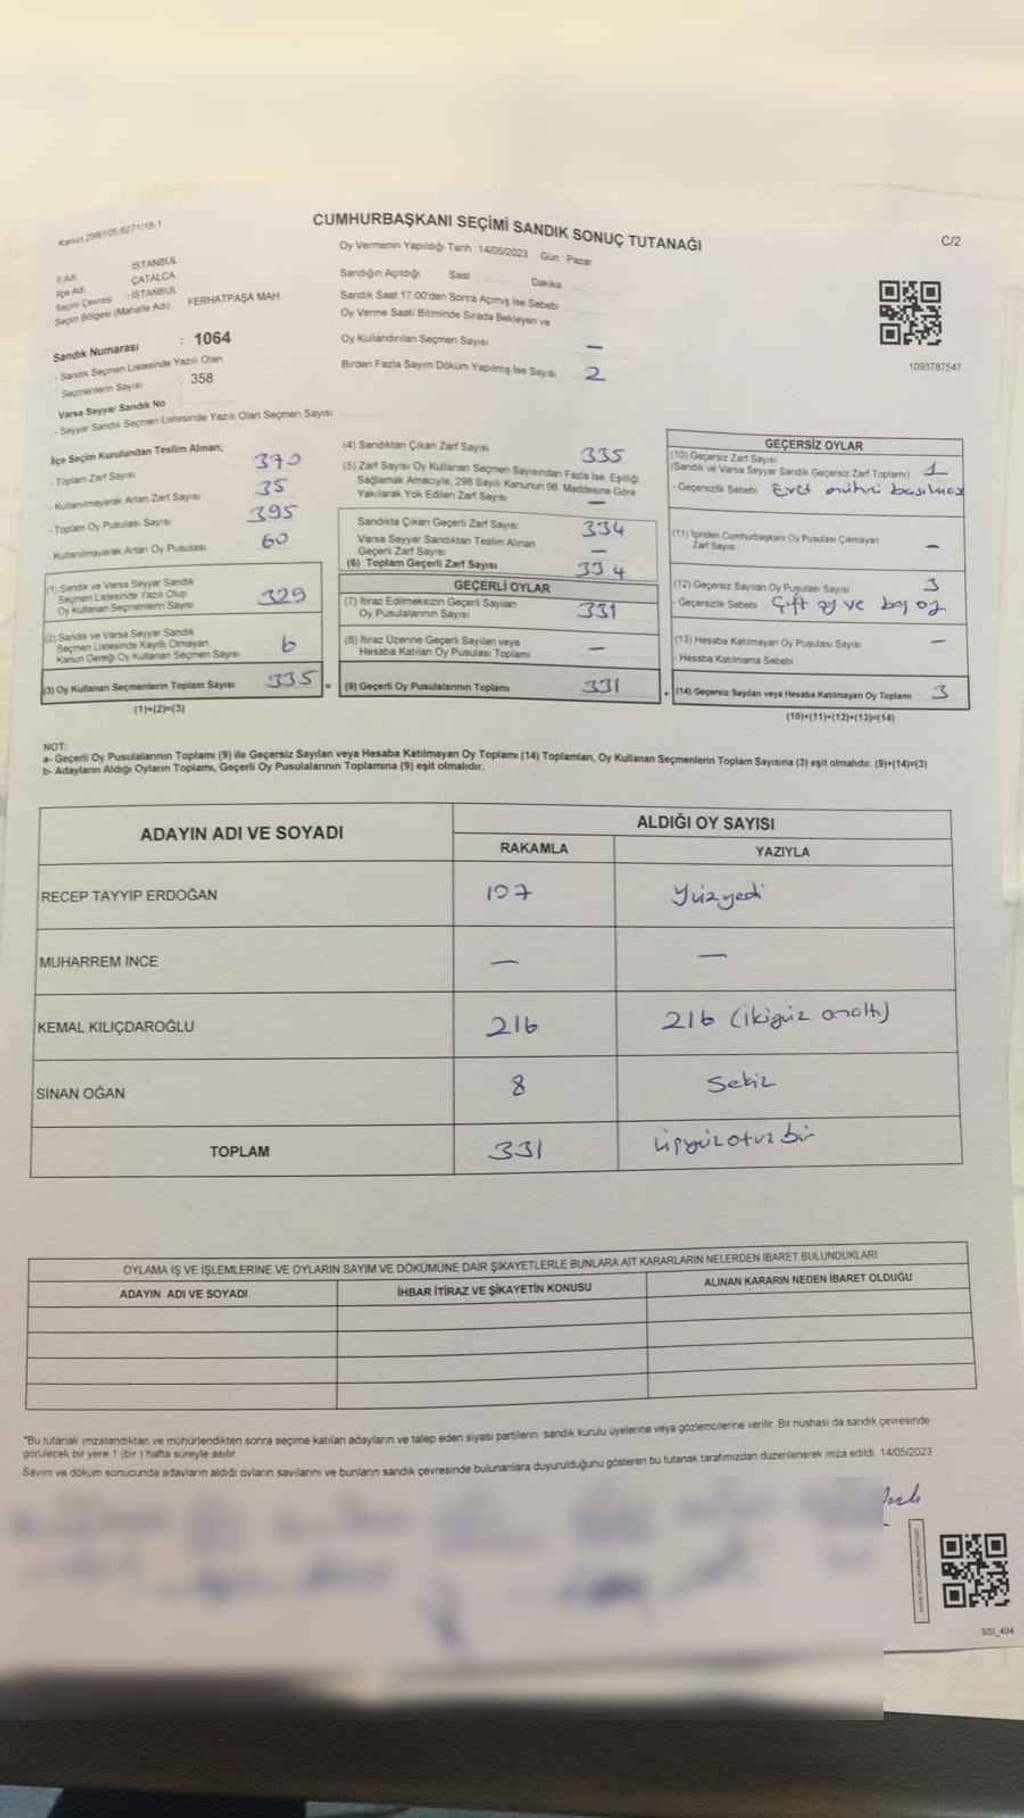 Kanun 298/105.6271/18-1
CUMHURBAŞKANI SEÇİMİ SANDIK SONUÇ TUTANAĞI
C/2
Oy Vermenin Yapıldığı Tarih : 14/05/2023 Gün Pazar
İl Adı İSTANBUL
İlçe Adı ÇATALCA
Seçim Çevresi : İSTANBUL
Seçim Bölgesi (Mahalle Adı) FERHATPAŞA MAH.
Sandığın Açıldığı Saat Dakika
Sandık Saat 17:00'den Sonra Açmış İse Sebebi
Oy Verme Saati Bitiminde Sırada Bekleyen ve
Oy Kullandırılan Seçmen Sayısı —
Birden Fazla Sayım Döküm Yapılmış İse Sayısı 2
1093787547
Sandık Numarası : 1064
- Sandık Seçmen Listesinde Yazılı Olan
Seçmenlerin Sayısı : 358
Varsa Seyyar Sandık No
- Seyyar Sandık Seçmen Listesinde Yazılı Olan Seçmen Sayısı
İlçe Seçim Kurulundan Teslim Alınan;
- Toplam Zarf Sayısı 370
- Kullanılmayarak Artan Zarf Sayısı 35
- Toplam Oy Pusulası Sayısı 395
- Kullanılmayarak Artan Oy Pusulası 60
(1) Sandık ve Varsa Seyyar Sandık
Seçmen Listesinde Yazılı Olup
Oy Kullanan Seçmenlerin Sayısı 329
(2) Sandık ve Varsa Seyyar Sandık
Seçmen Listesinde Kayıtlı Olmayan
Kanun Gereği Oy Kullanan Seçmen Sayısı 6
(3) Oy Kullanan Seçmenlerin Toplam Sayısı 335 =
(1)+(2)=(3)
(4) Sandıktan Çıkan Zarf Sayısı 335
(5) Zarf Sayısı Oy Kullanan Seçmen Sayısından Fazla İse, Eşitliği
Sağlamak Amacıyla, 298 Sayılı Kanunun 98. Maddesine Göre
Yakılarak Yok Edilen Zarf Sayısı —
Sandıkta Çıkan Geçerli Zarf Sayısı 334
Varsa Seyyar Sandıktan Teslim Alınan
Geçerli Zarf Sayısı —
(6) Toplam Geçerli Zarf Sayısı 334
GEÇERLİ OYLAR
(7) İtiraz Edilmeksizin Geçerli Sayılan
Oy Pusulalarının Sayısı 331
(8) İtiraz Üzerine Geçerli Sayılan veya
Hesaba Katılan Oy Pusulası Toplamı —
(9) Geçerli Oy Pusulalarının Toplamı 331
GEÇERSİZ OYLAR
(10) Geçersiz Zarf Sayısı
(Sandık ve Varsa Seyyar Sandık Geçersiz Zarf Toplamı) 1
- Geçersizlik Sebebi Evet mührü basılmış
(11) İçinden Cumhurbaşkanı Oy Pusulası Çıkmayan
Zarf Sayısı —
(12) Geçersiz Sayılan Oy Pusulası Sayısı 3
- Geçersizlik Sebebi Çift oy ve boş oy
(13) Hesaba Katılmayan Oy Pusulası Sayısı —
- Hesaba Katılmama Sebebi
+ (14) Geçersiz Sayılan veya Hesaba Katılmayan Oy Toplamı 3
(10)+(11)+(12)+(13)=(14)
NOT:
a- Geçerli Oy Pusulalarının Toplamı (9) ile Geçersiz Sayılan veya Hesaba Katılmayan Oy Toplamı (14) Toplamları, Oy Kullanan Seçmenlerin Toplam Sayısına (3) eşit olmalıdır. (9)+(14)=(3)
b- Adayların Aldığı Oyların Toplamı, Geçerli Oy Pusulalarının Toplamına (9) eşit olmalıdır.
ADAYIN ADI VE SOYADI
ALDIĞI OY SAYISI
RAKAMLA YAZIYLA
RECEP TAYYİP ERDOĞAN 107 Yüzyedi
MUHARREM İNCE — —
KEMAL KILIÇDAROĞLU 216 216 (ikiyüz onaltı)
SİNAN OĞAN 8 Sekiz
TOPLAM 331 üçyüzotuz bir
OYLAMA İŞ VE İŞLEMLERİNE VE OYLARIN SAYIM VE DÖKÜMÜNE DAİR ŞİKAYETLERLE BUNLARA AİT KARARLARIN NELERDEN İBARET BULUNDUKLARI
ADAYIN ADI VE SOYADI İHBAR İTİRAZ VE ŞİKAYETİN KONUSU ALINAN KARARIN NEDEN İBARET OLDUĞU
*Bu tutanak imzalandıktan ve mühürlendikten sonra seçime katılan adayların ve talep eden siyasi partilerin sandık kurulu üyelerine veya gözlemcilerine verilir. Bir nüshası da sandık çevresinde
görülecek bir yere 1 (bir) hafta süreyle asılır.
Sayım ve döküm sonucunda adayların aldığı oyların sayılarını ve bunların sandık çevresinde bulunanlara duyurulduğunu gösteren bu tutanak tarafımızdan düzenlenerek imza edildi. 14/05/2023
SSI_404